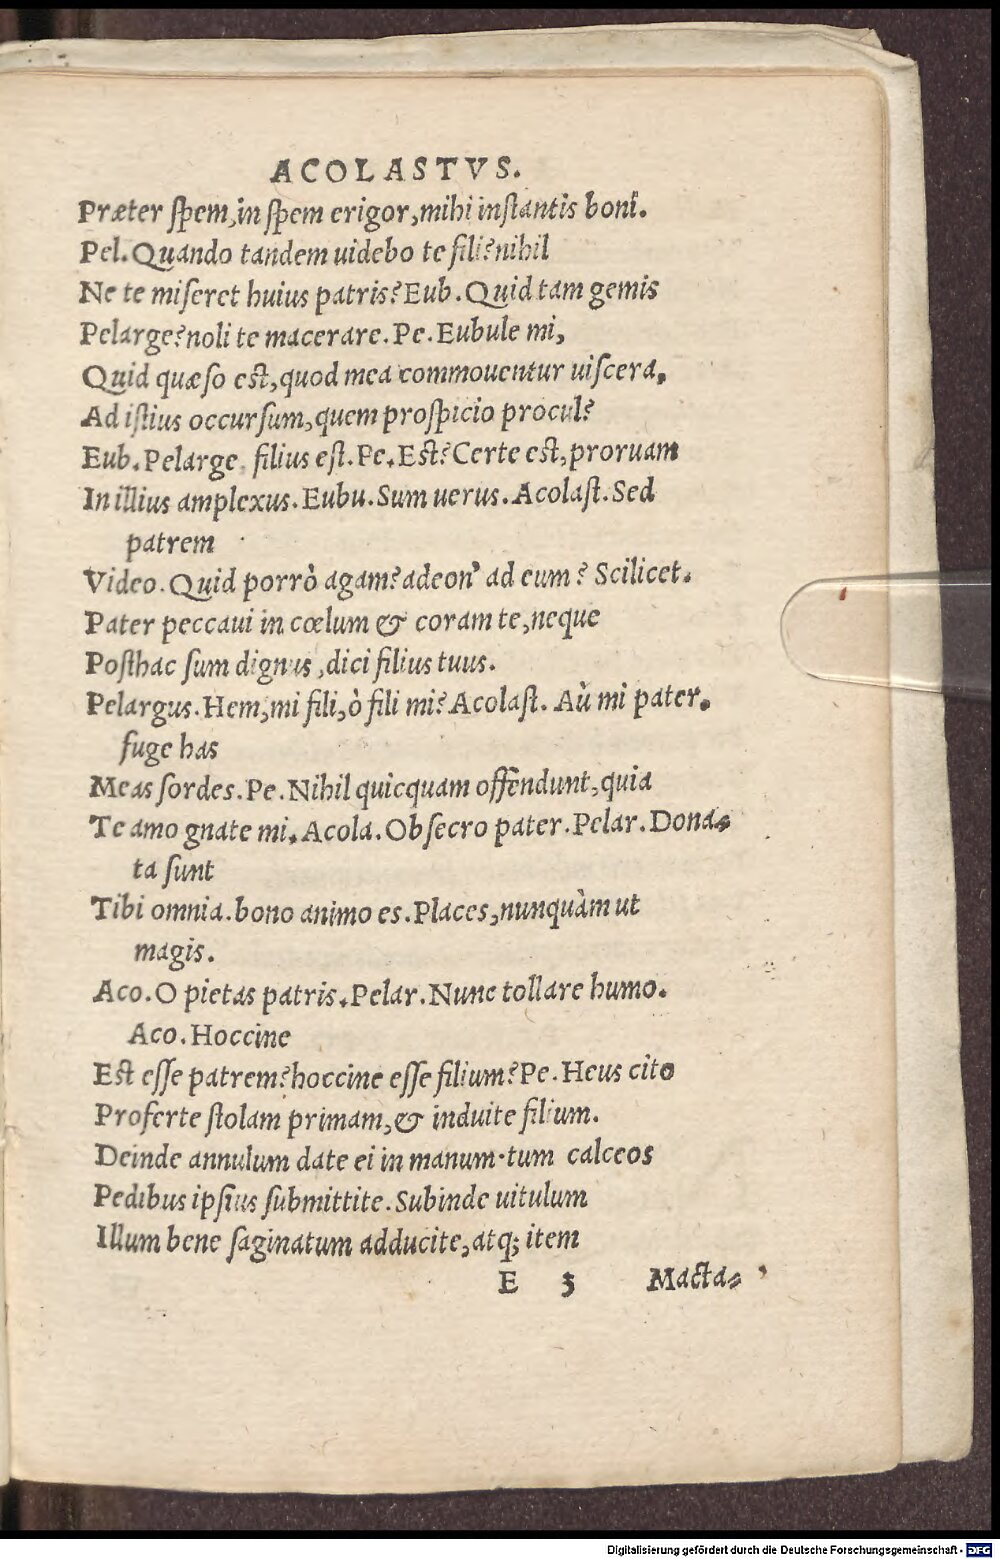 ACOLASTVS.
Præter ſpem, in ſpem erigor, mihi inſtantis boni.
Pel. Quando tandem uidebo te fili? nihil
Ne te miſeret huius patris? Eub. Quid tam gemis
Pelarge? noli te macerare. Pe. Eubule mi,
Quid quæſo eſt, quod mea commouentur uiſcera,
Ad iſtius occurſum, quem proſpicio procul?
Eub. Pelarge, filius eſt. Pe. Eſt? Certe eſt, proruam
In illius amplexus. Eubu. Sum uerus. Acolaſt. Sed
patrem
Video. Quid porrò agam? adeon' ad eum? Scilicet.
Pater peccaui in cœlum & coram te, neque
Poſthac ſum dignus, dici filius tuus.
Pelargus. Hem, mi fili, ò fili mi? Acolaſt. Aù mi pater.
fuge has
Meas ſordes. Pe. Nihil quicquam offēndunt, quia
Te amo gnate mi. Acola. Obſecro pater. Pelar. Dona⸗
ta ſunt
Tibi omnia. bono animo es. Places, nunquàm ut
magis.
Aco. O pietas patris. Pelar. Nunc tollare humo.
Aco. Hoccine
Eſt eſſe patrem? hoccine eſſe filium? Pe. Heus cito
Proferte ſtolam primam, & induite filium.
Deinde annulum date ei in manum·tum calceos
Pedibus ipſius ſubmittite. Subinde uitulum
Illum bene ſaginatum adducite, atq; item
E 3 Macta⸗
Digitalisierung gefördert durch die Deutsche Forschungsgemeinschaft - DFG